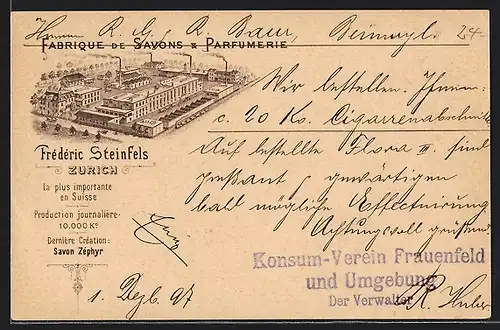 Herren R. G. R. Baur, Beinwyl. 24
FABRIQUE DE SAVONS & PARFUMERIE
Frédéric Steinfels
ZURICH
la plus importante
en Suisse
Production journalière:
10.000 Ko
Dernière Création:
Savon Zéphyr
Wir bestellen Ihnen
c. 20 Ko. Cigarrenabschnitte
Auf bestellte Flora III. sind
pressant, gewärtigen
bald mögliche Effectuirung
Achtungsvoll grüssend
Konsum-Verein Frauenfeld
und Umgebung
Der Verwalter
R. Huber
1. Dezb. 97